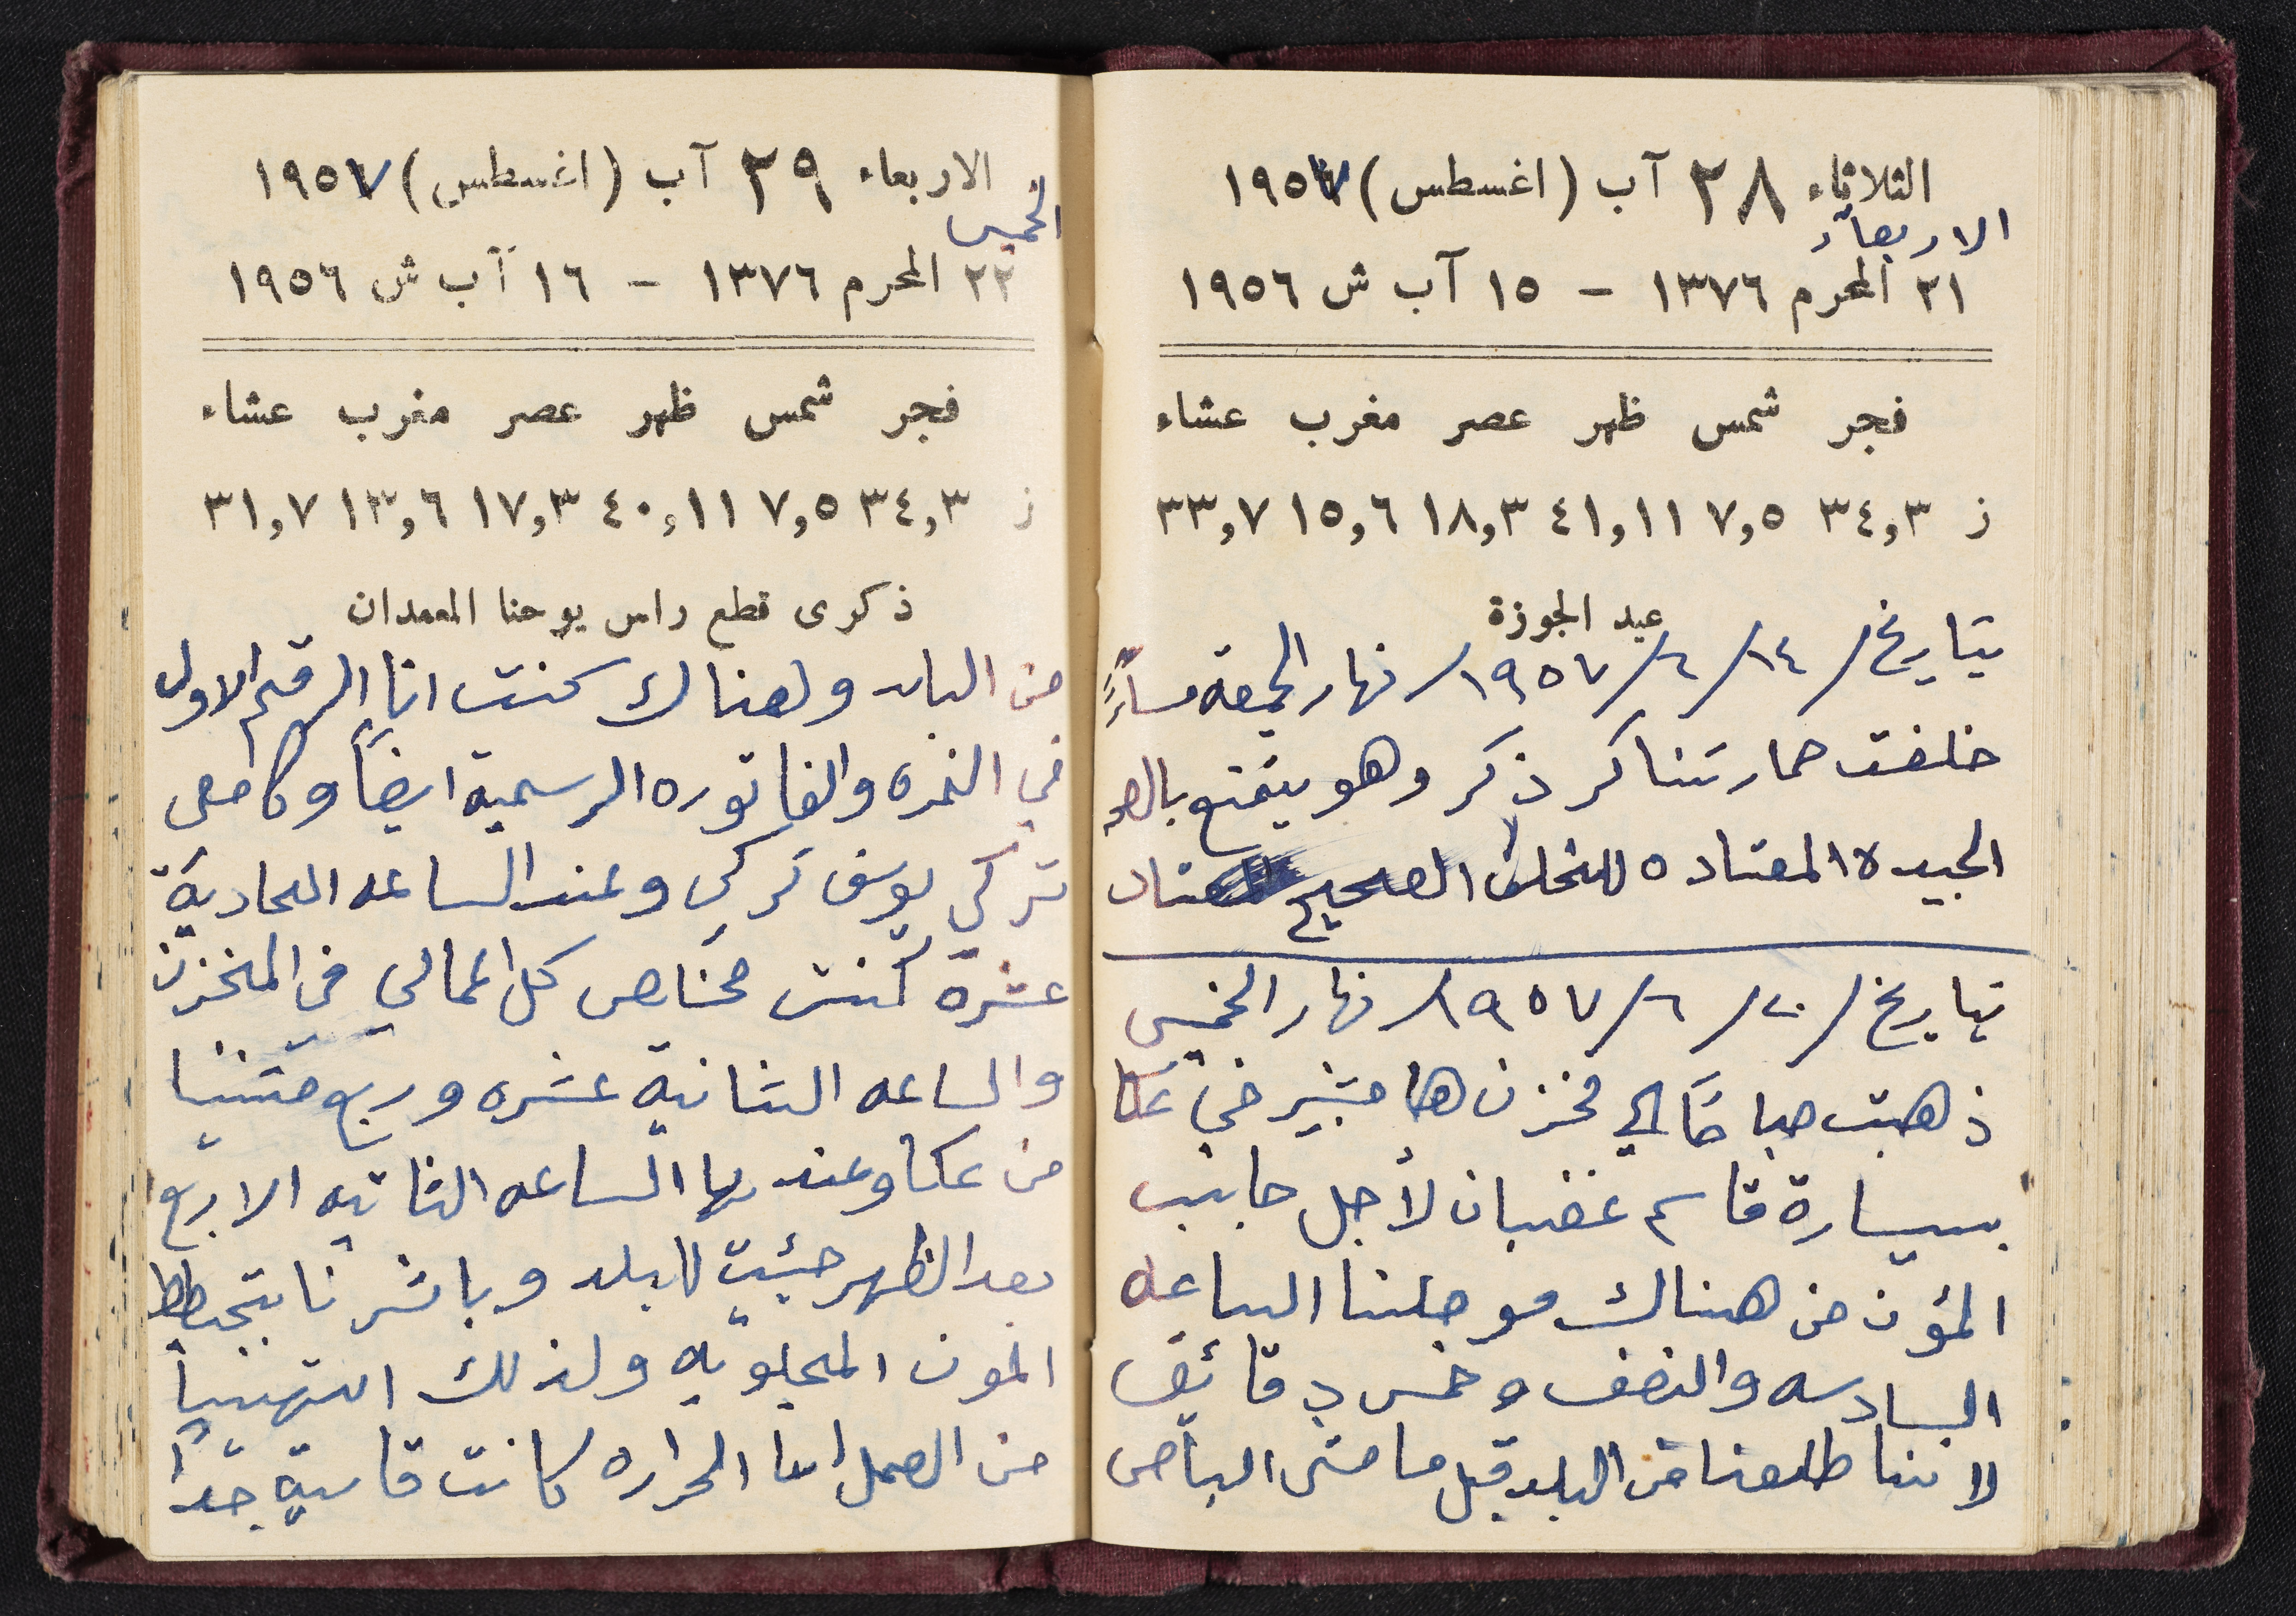 الثلاثاء ٢٨ آب (اغسطس) ١٩٥٧
الاربعاء
٢١ المحرم ١٣٧٦ - ١٥ آب ش ١٩٥٦
فجر شمس ظهر عصر مغرب عشاء
ز ٣٤,٣ ٧,٥ ٤١,١١ ١٨,٣ ١٥,٦ ٣٣,٧
عيد الجوزة
بتاريخ /١٤/٦/١٩٥٧/ نهار الجمعة مساءً
خلفت حمارتنا كر ذكر وهو يتمتع
الجيدة المعتاده للتخلف الصحيح
بتاريخ /٢٠/٦/١٩٥٧/ نهار الخميس
ذهبت صباحًا الى مخزن هامشبير في عكا
بسيارة قاسم غضبان لأجل جايب
المؤن من هناك موصلنا الساعه
السادسه والنصف وخمس دقائق
لاننا طلعنا من البلد قبل ما مشى الباص
الاربعاء ٢٩ آب (اغسطس) ١٩٥٧
الخميس
٢٢ المحرم ١٣٧٦ - ١٦ آب ش ١٩٥٦
فجر شمس ظهر عصر مغرب عشاء
ز ٣٤,٣ ٧,٥ ٤٠,١١ ١٧,٣ ١٣,٦ ٣١,٧
ذكرى قطع راس يوحنا المعمدان
من البلد وهناك كنت انا الرقم الاول
في النمره والفاتوره الرسمية ايضاً وكا معي
تركي يوسف تركي وعند الساعه الحادية
عشرة كنت مخالص كل اعمالي في المخزن
والساعه الثانية عشره وربع مشينا
من عكا وعندها الساعه الثانيه الا ربع
بعد الظهر جئت للبلد وباشرنا بتحطط
المون المجلوبه ولذلك انتهينا
من العمل اما الحراره كانت قاسية جداً